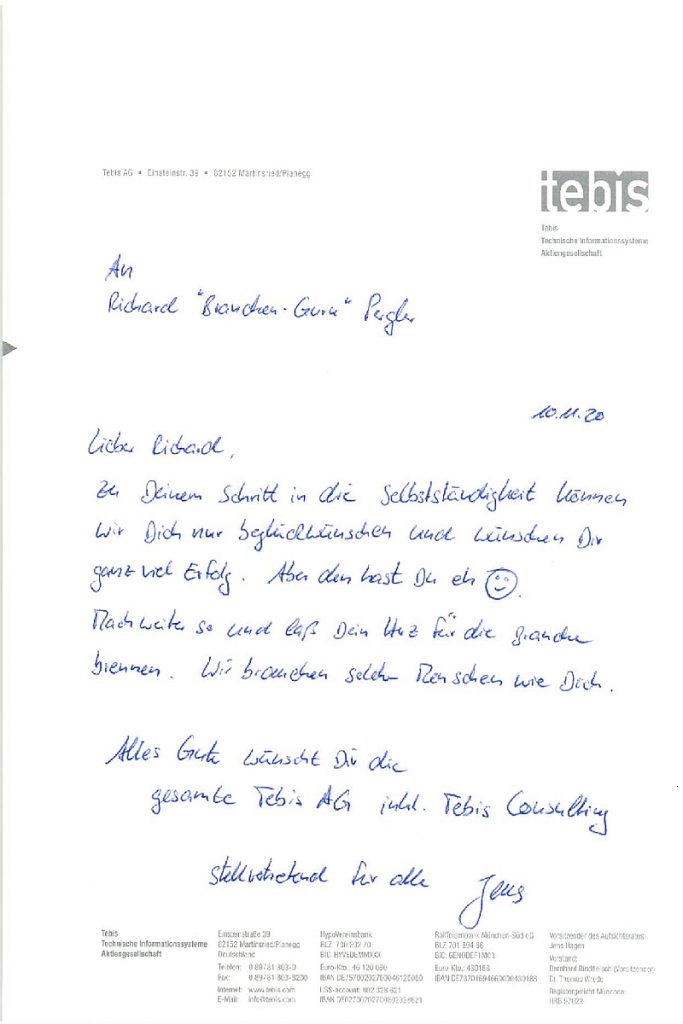 Tebis AG • Einsteinstr. 39 • 82152 Martinsried/Planegg
tebis
Tebis
Technische Informationssysteme
Aktiengesellschaft
An
Richard "Branchen-Guru" Pergler
10.11.20
Lieber Richard,
zu Deinem Schritt in die Selbstständigkeit können
wir Dich nur beglückwünschen und wünschen Dir
ganz viel Erfolg. Aber den hast Du eh ☺.
Mach weiter so und laß Dein Herz für die Branche
brennen. Wir brauchen solche Menschen wie Dich.
Alles Gute wünscht Dir die
gesamte Tebis AG inkl. Tebis Consulting
stellvertretend für alle Jens
Tebis
Technische Informationssysteme
Aktiengesellschaft
Einsteinstraße 39
82152 Martinsried/Planegg
Deutschland
Telefon: 0 89/81 803-0
Fax: 0 89/81 803-8200
Internet: www.tebis.com
E-Mail: info@tebis.com
HypoVereinsbank
BLZ 700 202 70
BIC: HYVEDEMMXXX
Euro-Kto.:
Raiffeisenbank München-Süd eG
BLZ 701 694 66
BIC: GENODEF1M03
Euro-Kto.: 430188
Vorsitzender des Aufsichtsrates:
Jens Hagen
Vorstand:
Bernhard Rindfleisch (Vorsitzender)
Dr. Thomas Wrede
Registergericht München:
HRB